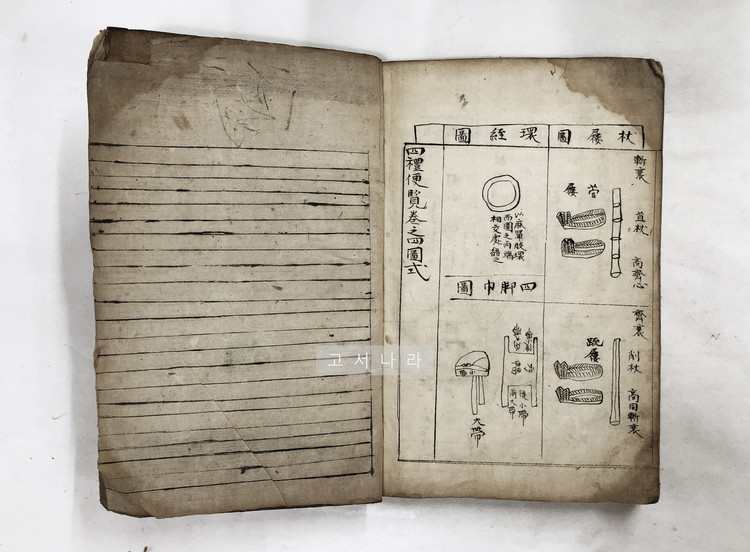 杖屨圖
斬衰
苴杖
高齊心
菅屨
齊衰
削杖
高同斬衰
疏屨
環絰圖
以麻單股環
而圍之兩端
相交處
四脚巾圖
後小帶
前大帶
大帶
四禮便覽卷之四圖式
고서나라